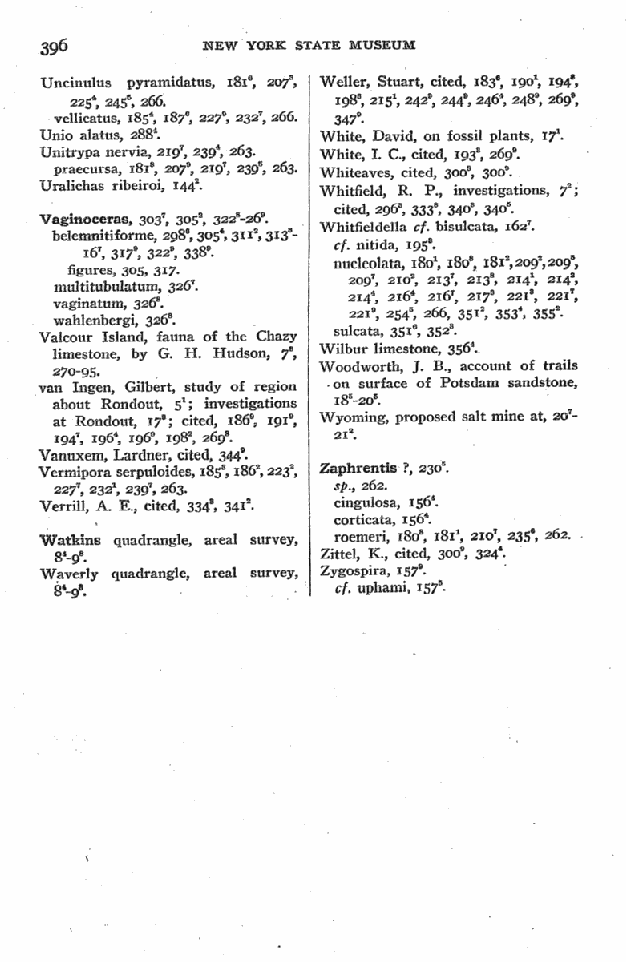 396 NEW YORK STATE MUSEUM
Uncinulus pyramidatus, 181⁹, 207⁸,
225⁴, 245⁵, 266.
vellicatus, 185⁴, 187⁹, 227⁹, 232⁷, 266.
Unio alatus, 288⁴.
Unitrypa nervia, 219⁷, 239⁴, 263.
praecursa, 181⁸, 207⁹, 219⁷, 239⁶, 263.
Uralichas ribeiroi, 144².
Vaginoceras, 303⁷, 305², 322⁸-26⁹.
belemnitiforme, 298⁶, 305⁴, 311², 313⁸-
16⁷, 317⁹, 322⁹, 338⁹.
figures, 305, 317.
multitubulatum, 326⁷.
vaginatum, 326⁸.
wahlenbergi, 326⁸.
Valcour Island, fauna of the Chazy
limestone, by G. H. Hudson, 7⁸,
270-95.
van Ingen, Gilbert, study of region
about Rondout, 5¹; investigations
at Rondout, 17⁸; cited, 186⁹, 191⁹,
194⁷, 196⁴, 196⁹, 198², 269⁸.
Vanuxem, Lardner, cited, 344⁸.
Vermipora serpuloides, 185⁸, 186², 223²,
227⁷, 232², 239⁷, 263.
Verrill, A. E., cited, 334⁸, 341².
Watkins quadrangle, areal survey,
8⁴-9⁸.
Waverly quadrangle, areal survey,
8⁴-9⁸.
Weller, Stuart, cited, 183⁶, 190¹, 194⁸,
198⁸, 215¹, 242⁹, 244⁹, 246⁹, 248⁹, 269⁹,
347⁹.
White, David, on fossil plants, 17¹.
White, I. C., cited, 193², 269⁹.
Whiteaves, cited, 300⁸, 300⁹.
Whitfield, R. P., investigations, 7²;
cited, 296², 333⁸, 340⁵, 340⁶.
Whitfieldella cf. bisulcata, 162⁷.
cf. nitida, 195⁹.
nucleolata, 180¹, 180⁸, 181², 209², 209⁸,
209⁷, 210², 213⁷, 213⁸, 214¹, 214²,
214⁴, 216⁴, 216⁷, 217⁸, 221⁸, 221⁷,
221⁹, 254⁵, 266, 351², 353⁴, 355².
sulcata, 351⁶, 352⁸.
Wilbur limestone, 356⁴.
Woodworth, J. B., account of trails
on surface of Potsdam sandstone,
18⁸-20⁵.
Wyoming, proposed salt mine at, 20⁷-
21².
Zaphrentis ?, 230⁵.
sp., 262.
cingulosa, 156⁴.
corticata, 156⁴.
roemeri, 180⁸, 181¹, 210⁷, 235⁶, 262.
Zittel, K., cited, 300⁹, 324⁸.
Zygospira, 157⁹.
cf. uphami, 157⁸.